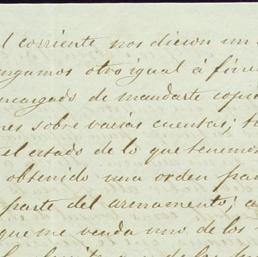 l corriente nos dieron un
ngamos otro igual á fin
ncargado de mandarte copia
nes sobre varias cuentas; t
el estado de lo que tenemos
obtenido una orden para
parte del armamento; a
que me venda uno de los